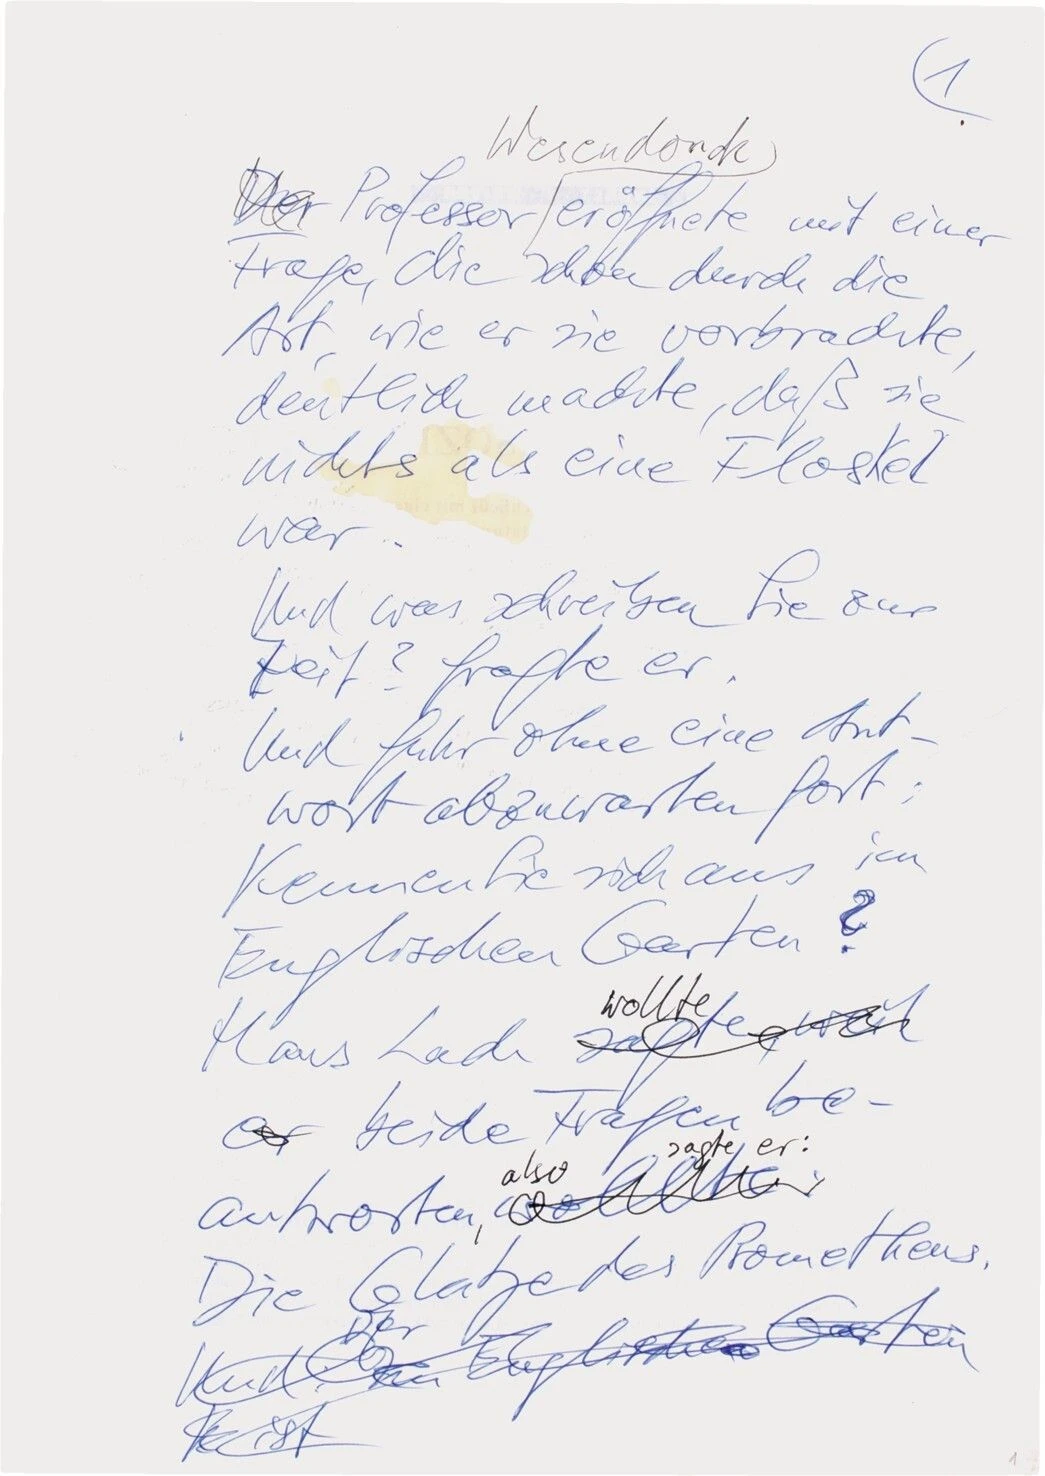 1
Wesendonck
Der Professor eröffnete mit einer
Frage, die schon durch die
Art, wie er sie vorbrachte,
deutlich machte, daß sie
nichts als eine Floskel
war.
Und was schreiben Sie zur
Zeit? fragte er.
Und fuhr ohne eine Ant-
wort abzuwarten fort:
Kennen Sie sich aus im
Englischen Garten?
wollte
Hans Lach sagte, weil
er beide Fragen be-
also sagte er:
antworten, wollte:
Die Glatze des Prometheus.
Der
Und: im Englischen Garten
ist
1